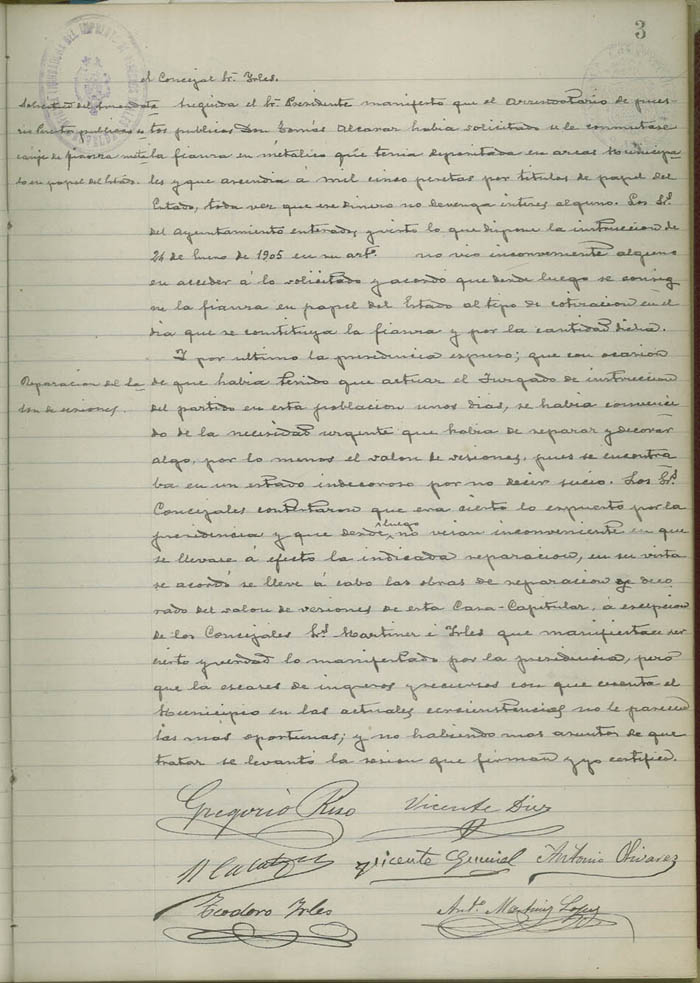 3
el Concejal Sr. Yrles.
Solicitud del Arrendata
rio Puestos publicos
canje de fianza metá
co en papel del Estado.
Seguida el Sr. Presidente manifestó que el Arrendatario de pues-
tos publicos Don Tomás Alcaraz habia solicitado se le conmutase
la fianza en metalico que tenia depositada en arcas Municipa
les y que ascendia á mil cinco pesetas por titulos de papel del
Estado, toda vez que ese dinero no devenga interes alguno. Los Sres.
del Ayuntamiento enterados y visto lo que dispone la instruccion de
24 de Enero de 1905 en su artº. no vio inconveniente alguno
en acceder á lo solicitado y acordó que desde luego se consig
ne la fianza en papel del Estado al tipo de cotizacion en el
dia que se constituya la fianza y por la cantidad dicha.
Reparacion del Sa-
lon de sesiones.
Y por ultimo la presidencia expuso; que con ocasión
de que habia tenido que actuar el Juzgado de instruccion
del partido en esta poblacion unos dias, se habia convenci
do de la necesidad urgente que habia de reparar y decorar
algo, por lo menos el salon de sesiones, pues se encontra
ba en un estado indecoroso por no decir sucio. Los Sres.
Concejales contestaron que era cierto lo expuesto por la
presidencia y que desde luego no veian inconveniente en que
se llevase á efecto la indicada reparacion, en su vista
se acordó se lleve á cabo las obras de reparacion y deco
rado del salon de sesiones de esta Casa-Capitular, á escepcion
de los Concejales Sres. Martinez é Yrles que manifiestan ser
cierto y verdad lo manifestado por la presidencia, pero
que la escases de ingresos y recursos con que cuenta el
Municipio en las actuales circunstancias no le parecen
las mas oportunas; y no habiendo mas asuntos de que
tratar se levantó la sesion que firman y yo certifico.
Gregorio Riso Vicente Diez
Vicente Antonio Olivares
Teodoro Yrles Antº. Martinez Lopez